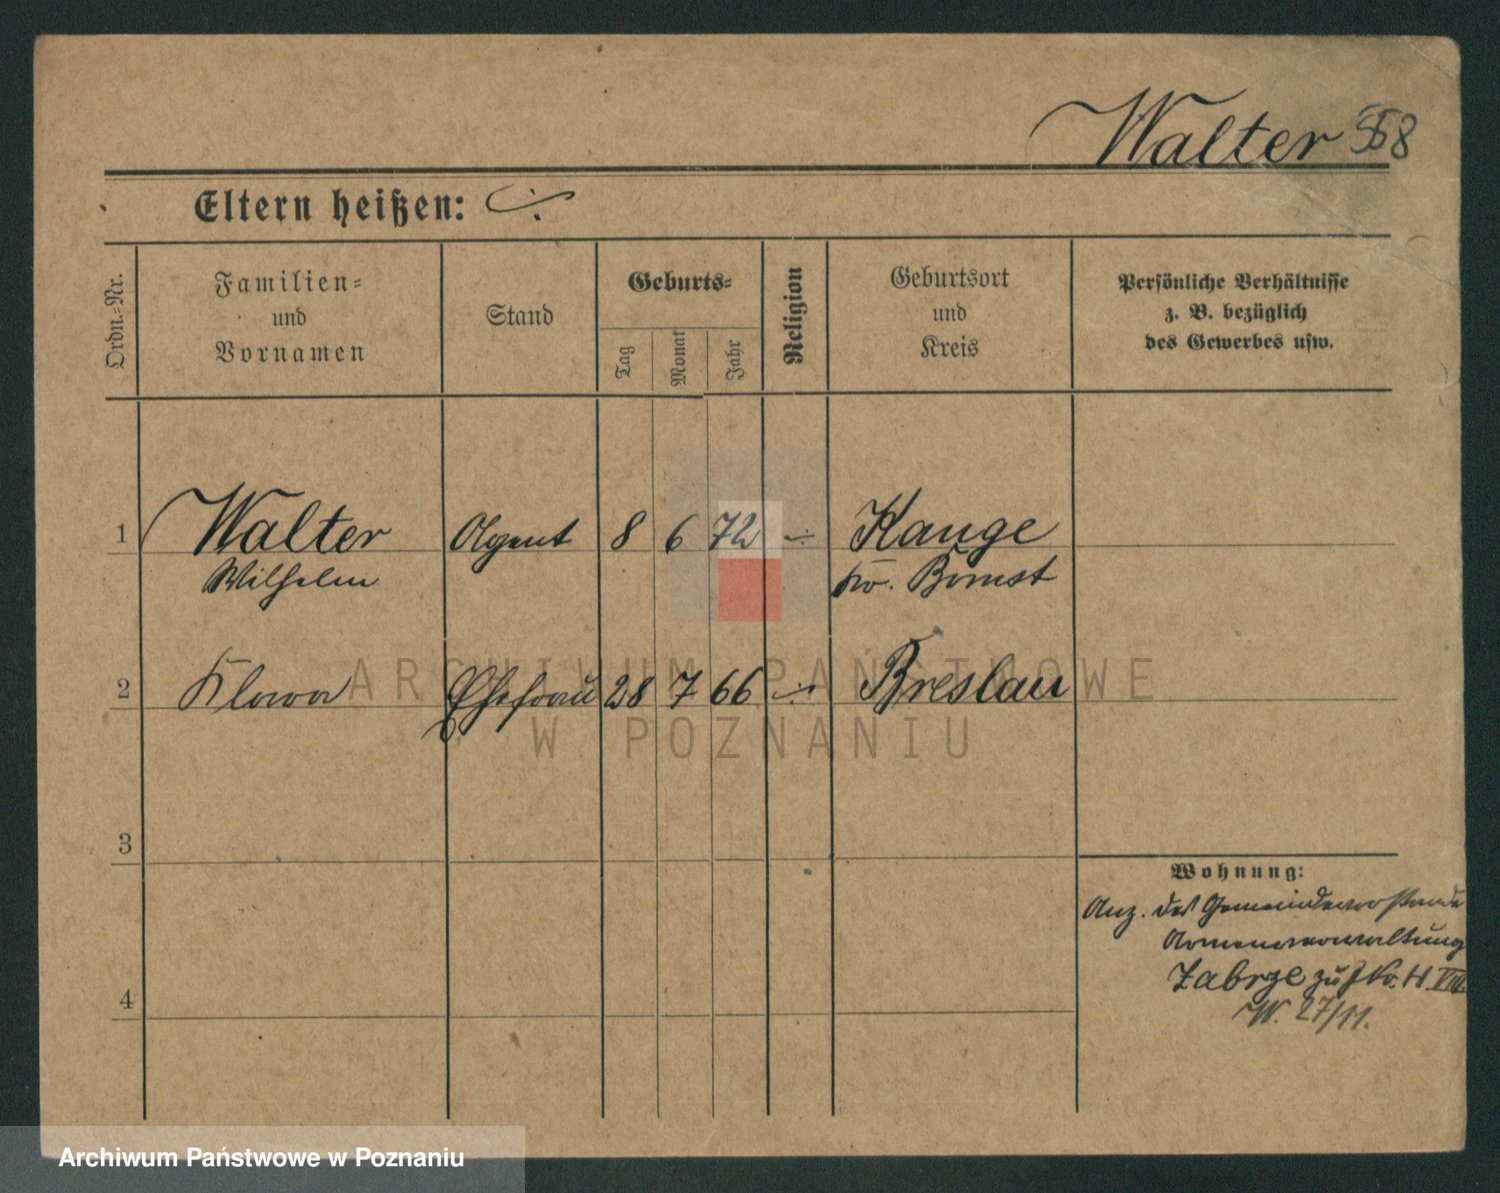 Walter 558
Eltern heißen: ./.
Ordn.-Nr.
Familien-
und
Vornamen
Stand
Geburts-
Tag
Monat
Jahr
Religion
Geburtsort
und
Kreis
Persönliche Verhältnisse
z. B. bezüglich
des Gewerbes usw.
1 Walter Agent 8 6 72 ./. Kange
Wilhelm Kr. Bomst
2 Klara Ehefrau 28 7 66 ./. Breslau
3
4
Wohnung:
Anz. des Gemeindevorstands
Armenverwaltung
Zabrze zu J Nr. H VIII
W. 27/11.
ARCHIWUM PAŃSTWOWE
W POZNANIU
Archiwum Państwowe w Poznaniu